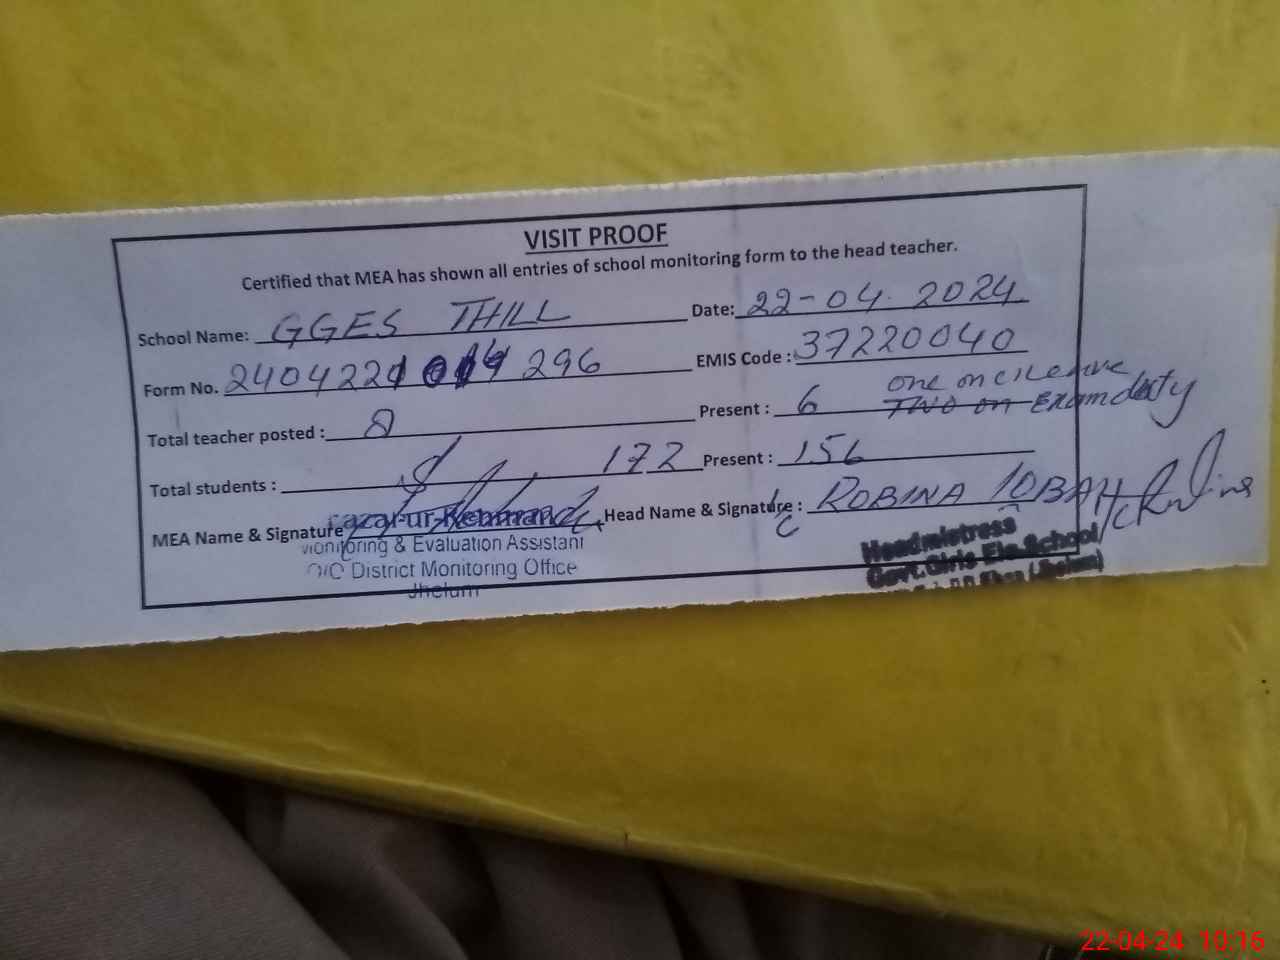 VISIT PROOF
Certified that MEA has shown all entries of school monitoring form to the head teacher.
School Name: GGES THILL Date: 22-04-2024
Form No. 296 EMIS Code: 37220040
one on
Total teacher posted: 8 Present: 6 TWO on Exam duty
Total students: 172 Present: 156
MEA Name & Signature Head Name & Signature: ROBINA
Monitoring & Evaluation Assistant
O/O District Monitoring Office
Jhelum
Headmistress
Govt. Girls Ele. School
22-04-24 10:16